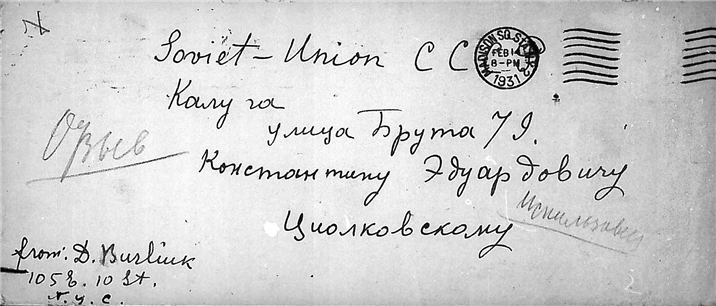 Soviet-Union CCCP
MADISON SQ. STA. N.Y. 2
FEB 14
8-PM
1931
Калуга
улица Брута 79.
Отзыв
Константину Эдуардовичу
Циолковскому
from: D. Burliuk
105 E. 10 St.
N.Y.C.